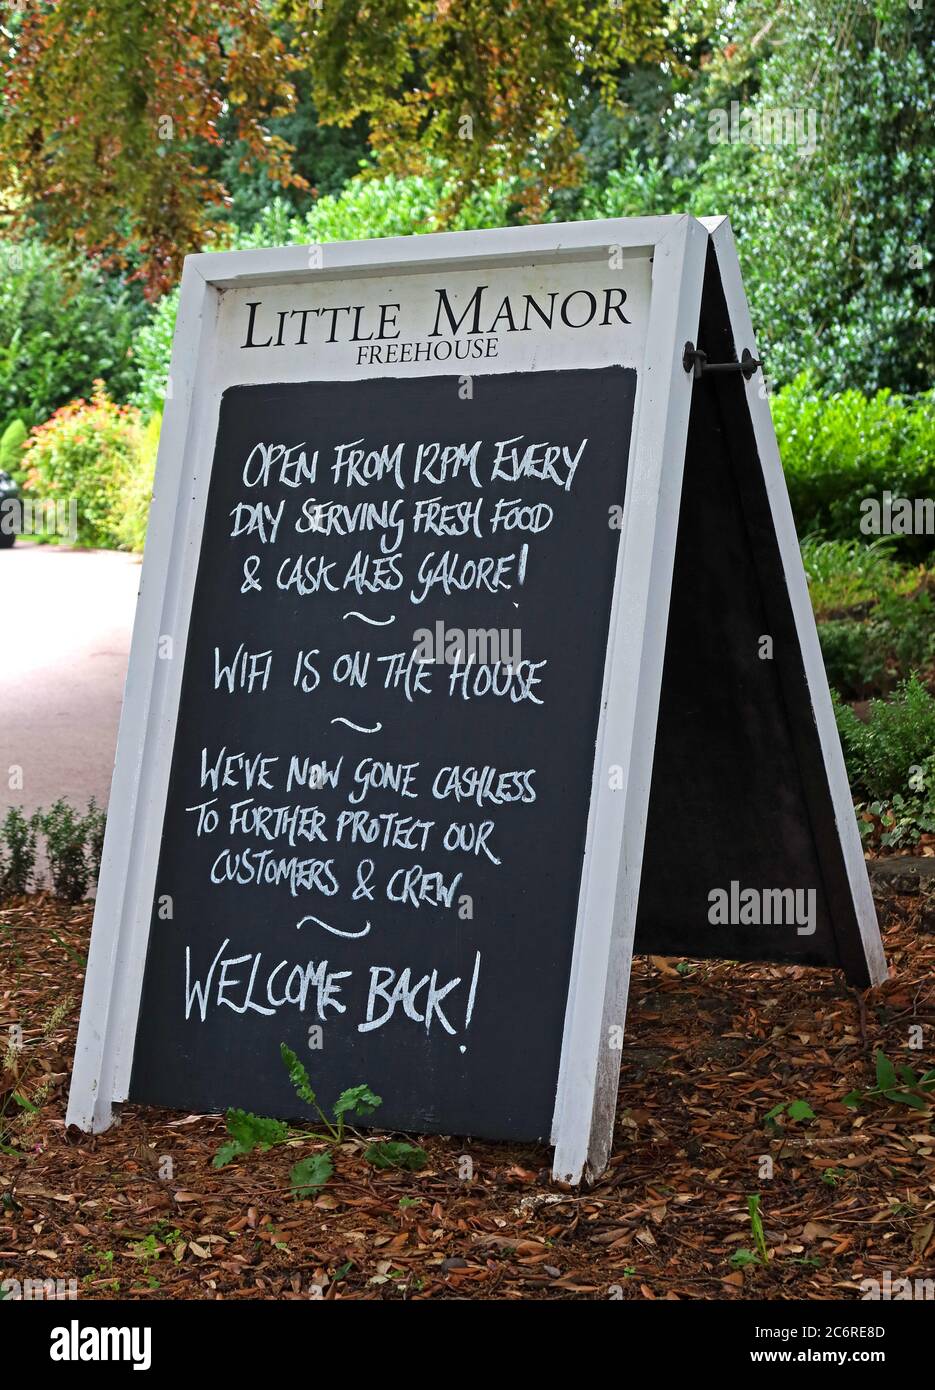 LITTLE MANOR
FREEHOUSE
OPEN FROM 12PM EVERY
DAY SERVING FRESH FOOD
& CASK ALES GALORE!
~
WIFI IS ON THE HOUSE
~
WE'VE NOW GONE CASHLESS
TO FURTHER PROTECT OUR
CUSTOMERS & CREW
~
WELCOME BACK!
alamy
alamy
alamy
alamy
Image ID: 2C6RE8D
www.alamy.com